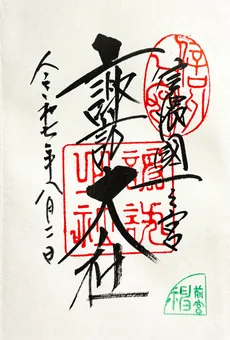 信濃國一之宮
諏訪大社
令和七年八月二日
諏訪大社之印
前宮